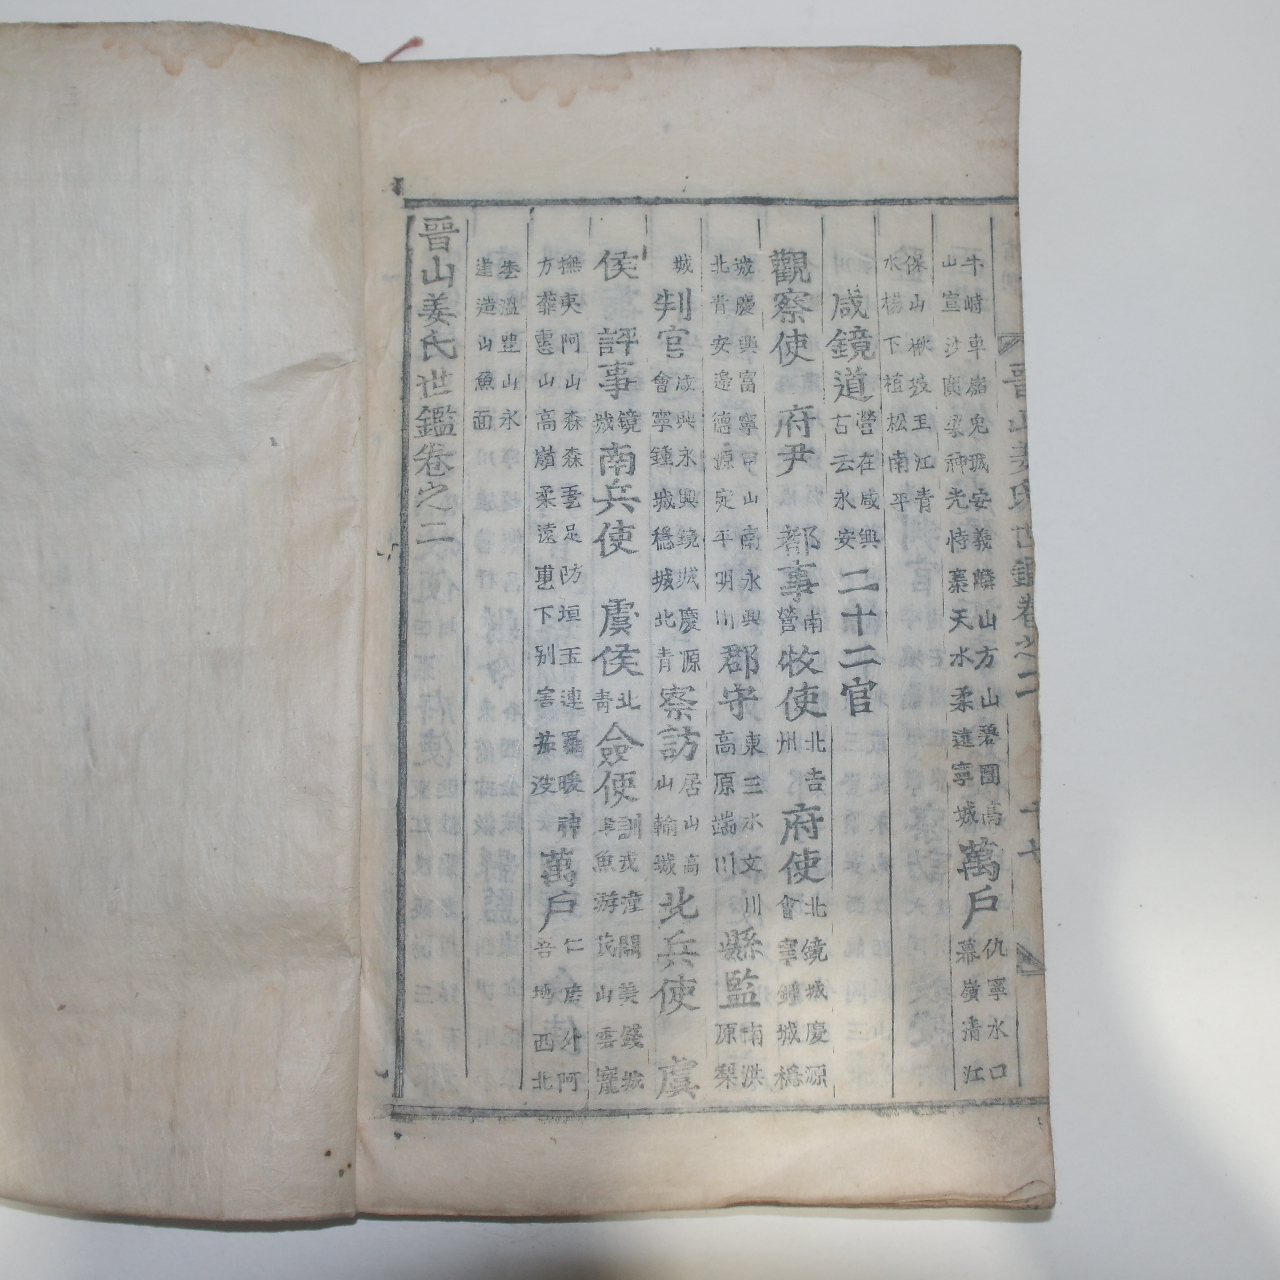 晋山姜氏世鑑卷之二
牛峙車嶺兎城安義麟山方山碧團高
山宣沙廣梁神光恃寨天水柔遠寧城
萬戶
仇寧水口
幕嶺清江
保山楸坡玉江青
水楊下植松南平
咸鏡道
營在咸興
古云永安
二十二官
觀察使 府尹 都事
南
營
牧使
北吉
州
府使
北鏡城慶源
會寧鍾城穩
城慶興富寧甲山南永興
北青安邊德源定平明川
郡守
東三水文川
高原端川
縣監
南洪
原梨
城
判官
咸興永興鏡城慶源
會寧鍾城穩城北青
察訪
居山高
山輸城
北兵使 虞
侯 評事
鏡
城
南兵使 虞侯
北
青
僉使
訓戎潼關美錢城
魚游茂山雲寵
撫夷阿山森森足防垣玉連羅暖神
方山高嶺柔遠下別害茄
萬戶
仁居外阿
吾地西北
溫豊山永
造山魚面
晉山姜氏世鑑卷之二